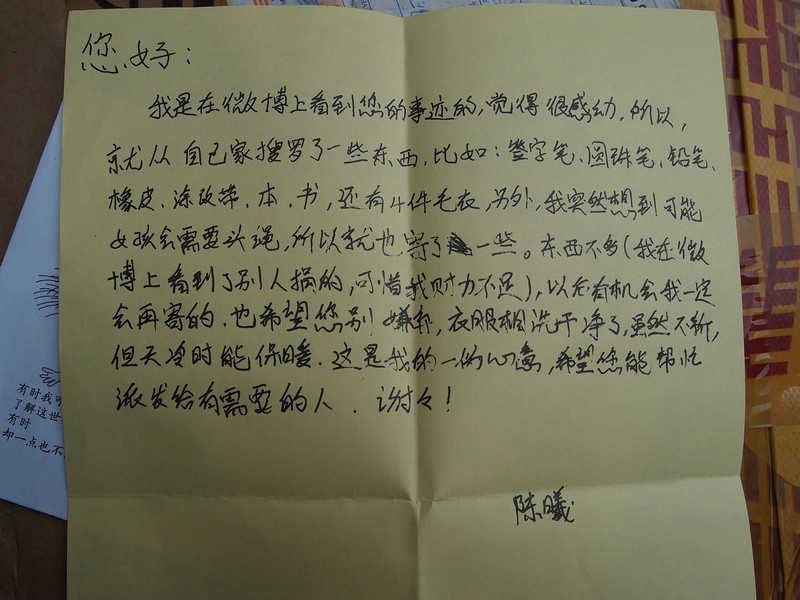 您好：
我是在微博上看到您的事迹的，觉得很感动，所以，
就从自己家搜罗了一些东西，比如：签字笔、圆珠笔、铅笔、
橡皮、涂改带、本、书，还有4件毛衣，另外，我突然想到可能
女孩会需要头绳，所以就也寄了一些。东西不多（我在微
博上看到了别人捐的，可惜我财力不足），以后有机会我一定
会再寄的。也希望您别嫌弃，衣服都洗干净了，虽然不新，
但天冷时能保暖．这是我的一份心意，希望您能帮忙
派发给有需要的人．谢谢！
陈曦
有时我
了解这世
有时
却一点也不